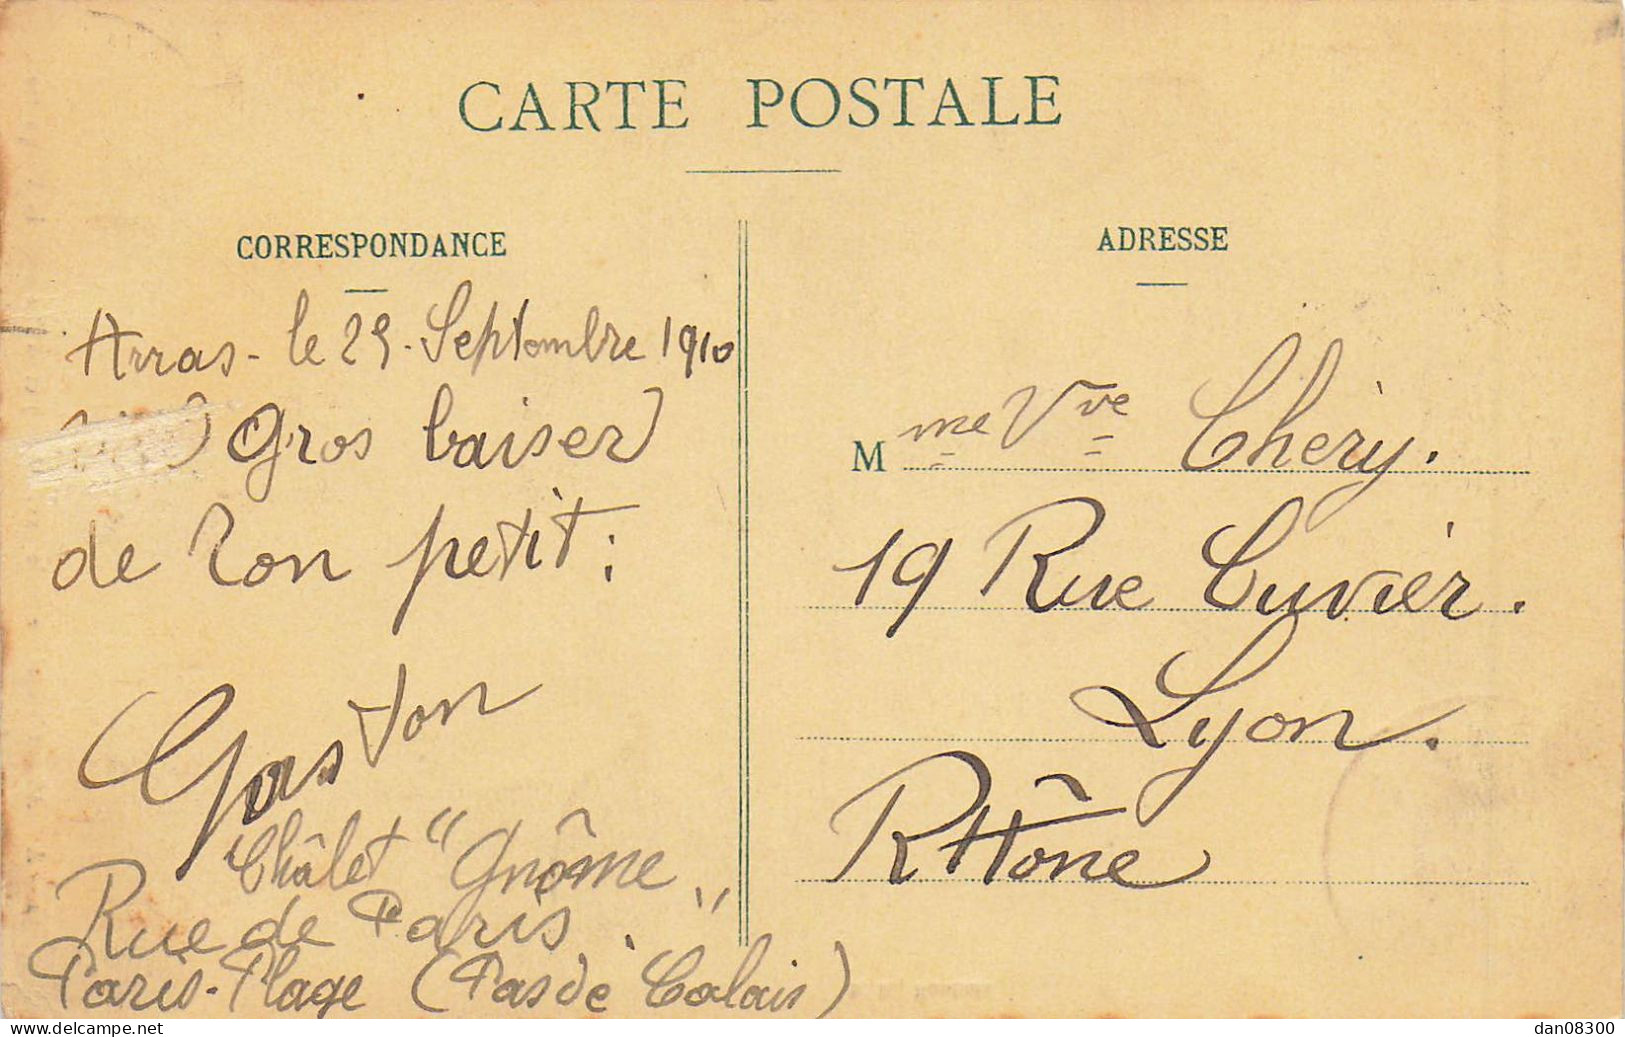 CARTE POSTALE
CORRESPONDANCE
Arras - le 29 Septembre 1910
Gros baiser
de ton petit :
Gaston
Châlet "Gnôme"
Rue de Paris.
Paris-Plage (Pas de Calais)
ADRESSE
Mme Vve Chéry.
19 Rue Cuvier.
Lyon.
RHône
www.delcampe.net
dan08300